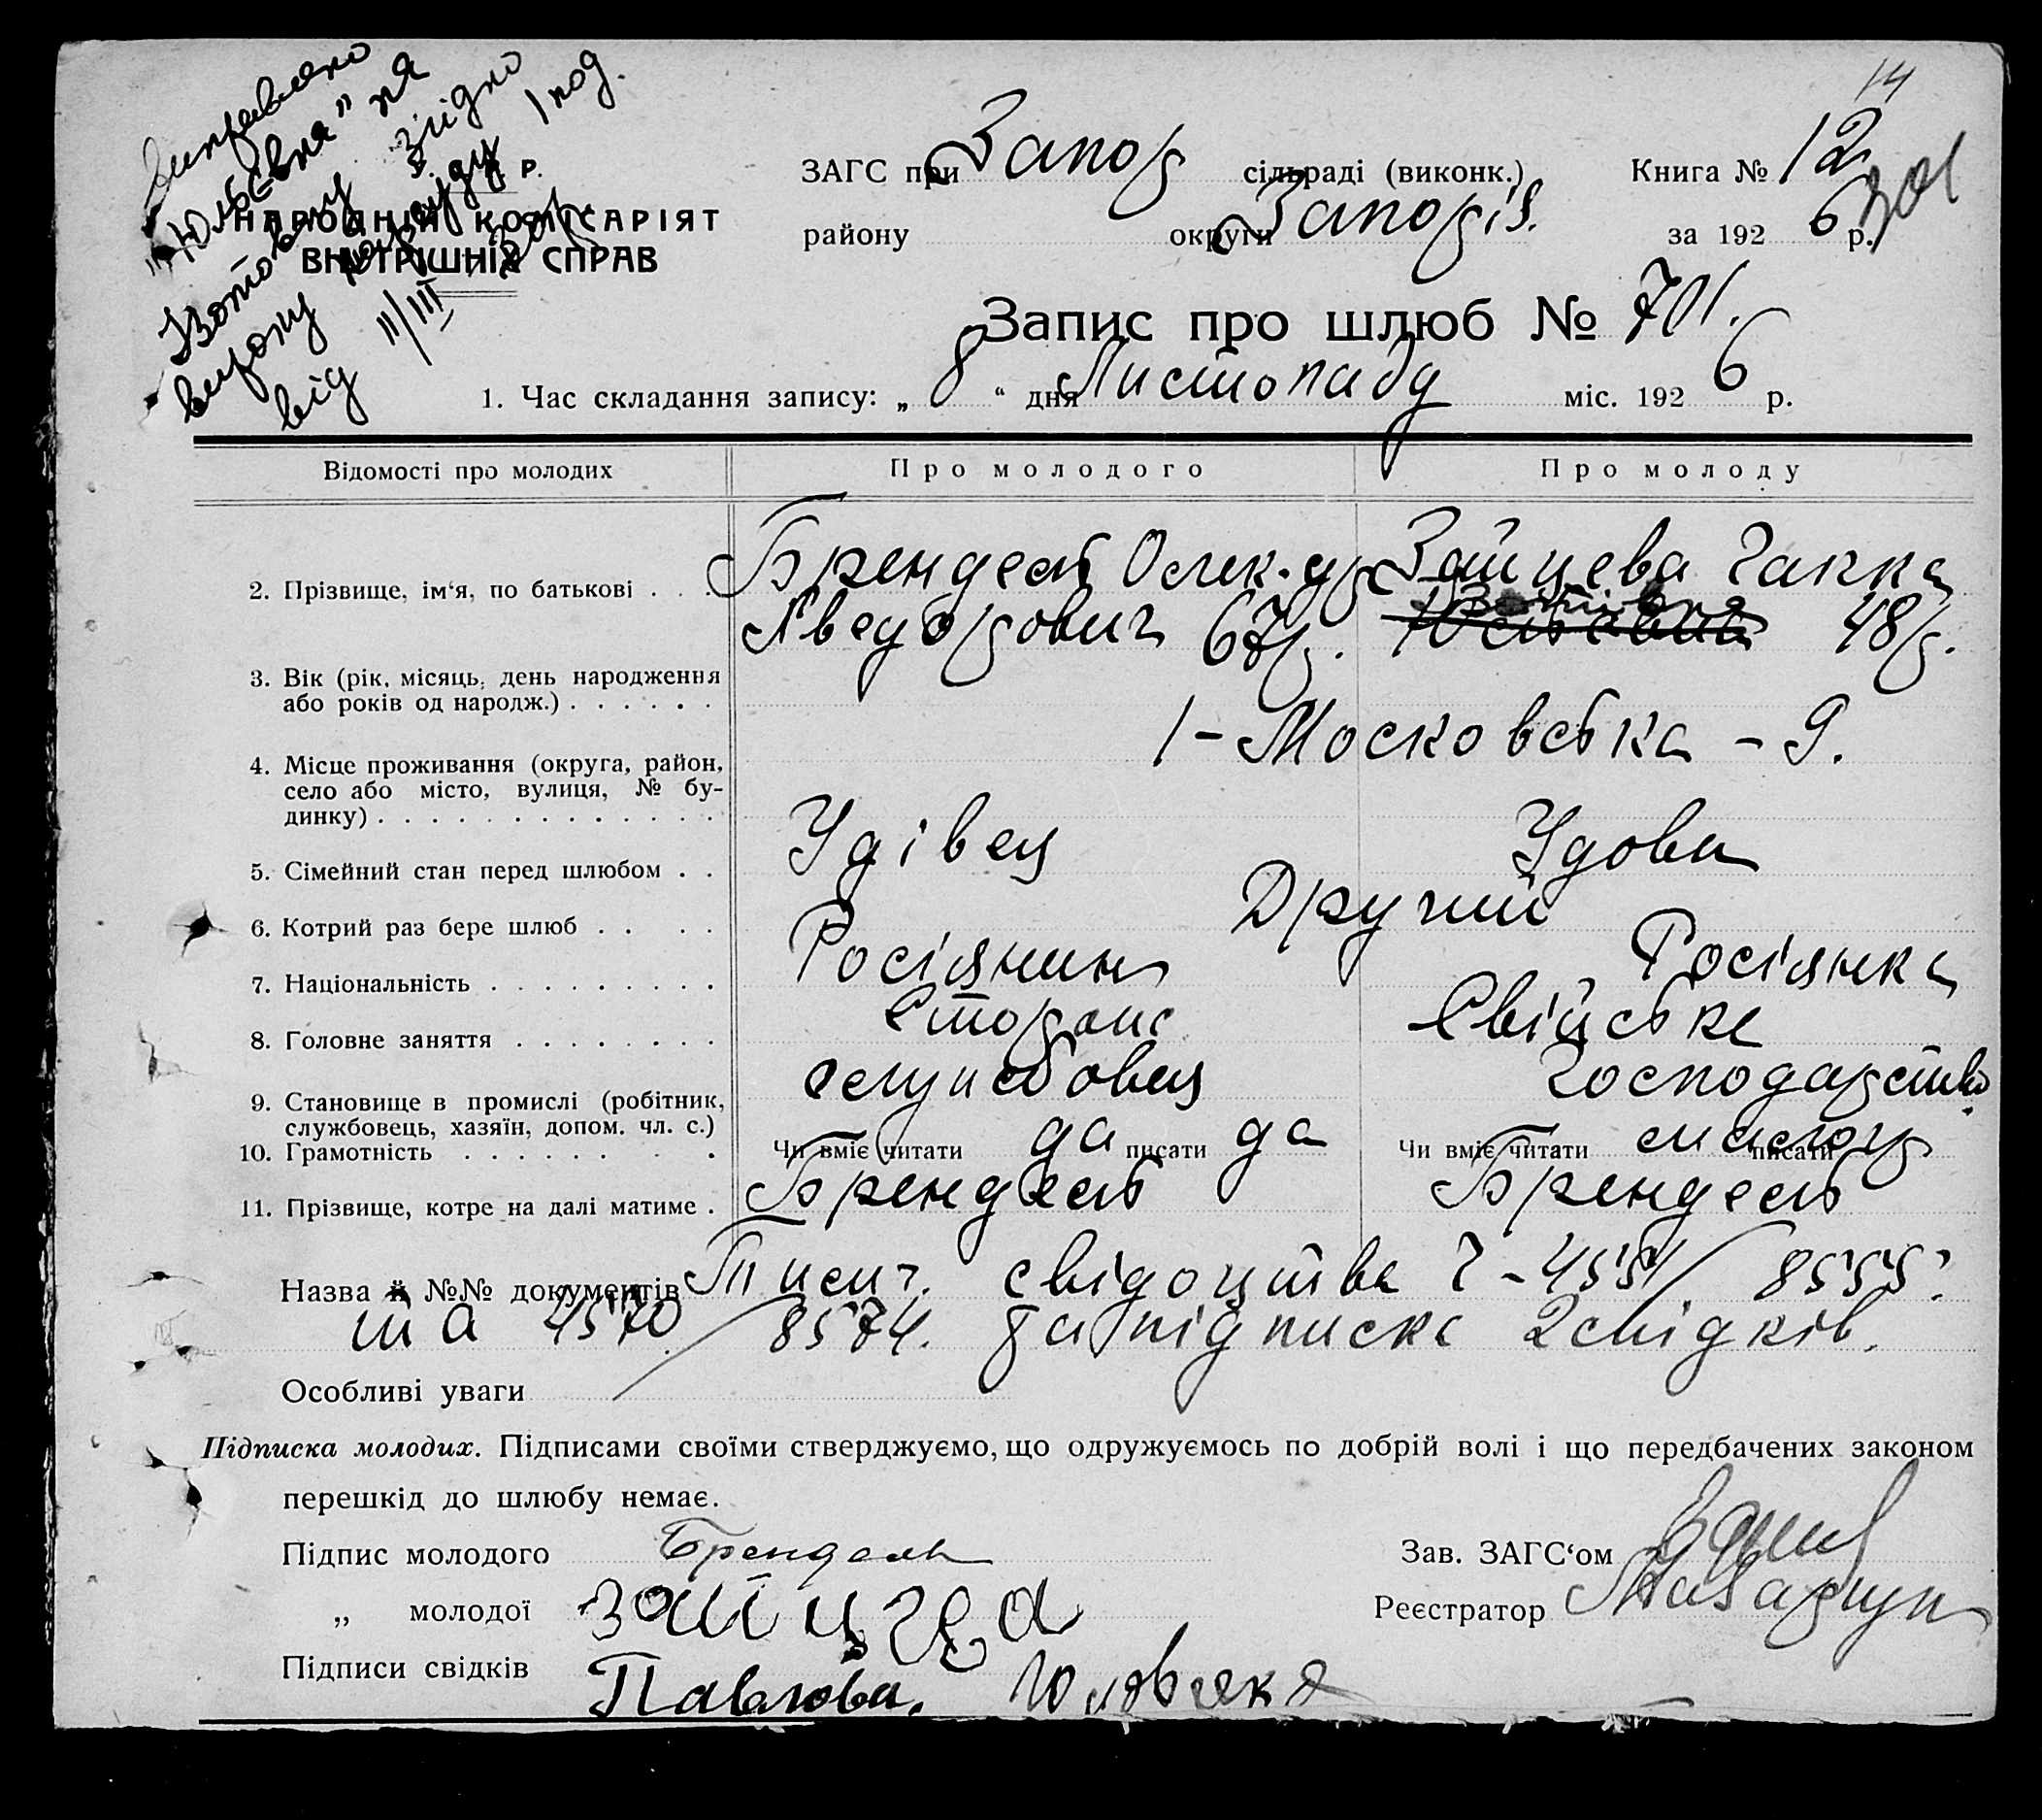 14
Виправлено
"Юльєвна" на
Ізотовну згідно
вироку нарсуду 1 под.
від 11/III 30 р.
Р.
НАРОДНІЙ КОМІСАРІЯТ
ВНУТРІШНІХ СПРАВ
ЗАГС при Запор сільраді (виконк.) Книга № 12
району округи Запоріз. за 192 6 р.
301
Запис про шлюб № 701.
1. Час складання запису: „ 8 “ дня Листопаду міс. 192 6 р.
Відомості про молодих Про молодого Про молоду
2. Прізвище, ім‘я, по батькові . . . Брендель Олек-др Зайцева Ганна
Хведорович 67 р. Юльевна Ізотівна 48 р.
3. Вік (рік, місяць, день народження
або років од народж.) . . . . . .
1 - Московська - 9.
4. Місце проживання (округа, район,
село або місто, вулиця, № бу-
динку) . . . . . . . . . . . . .
5. Сімейний стан перед шлюбом . . Удівец Удова
6. Котрий раз бере шлюб . . . . Другий
7. Національність . . . . . . . . . Росіянин Росіянка
8. Головне заняття . . . . . . . . Сторож Свійське
9. Становище в промислі (робітник, службовец господарство
службовець, хазяїн, допом. чл. с.)
10. Грамотність . . . . . . . Чи вміє читати да писати да Чи вміє читати писати
11. Прізвище, котре на далі матиме . Брендель Брендель
Назва й №№ документів Тисч. свідоцтва Ч - 4551/8555.
та 4570/8574. та підписка 2 свідків.
Особливі уваги
Підписка молодих. Підписами своїми стверджуємо, що одружуємось по добрій волі і що передбачених законом
перешкід до шлюбу немає.
Підпис молодого Брендель Зав. ЗАГС‘ом
„ молодої зайцева Реєстратор
Підписи свідків Павлова.